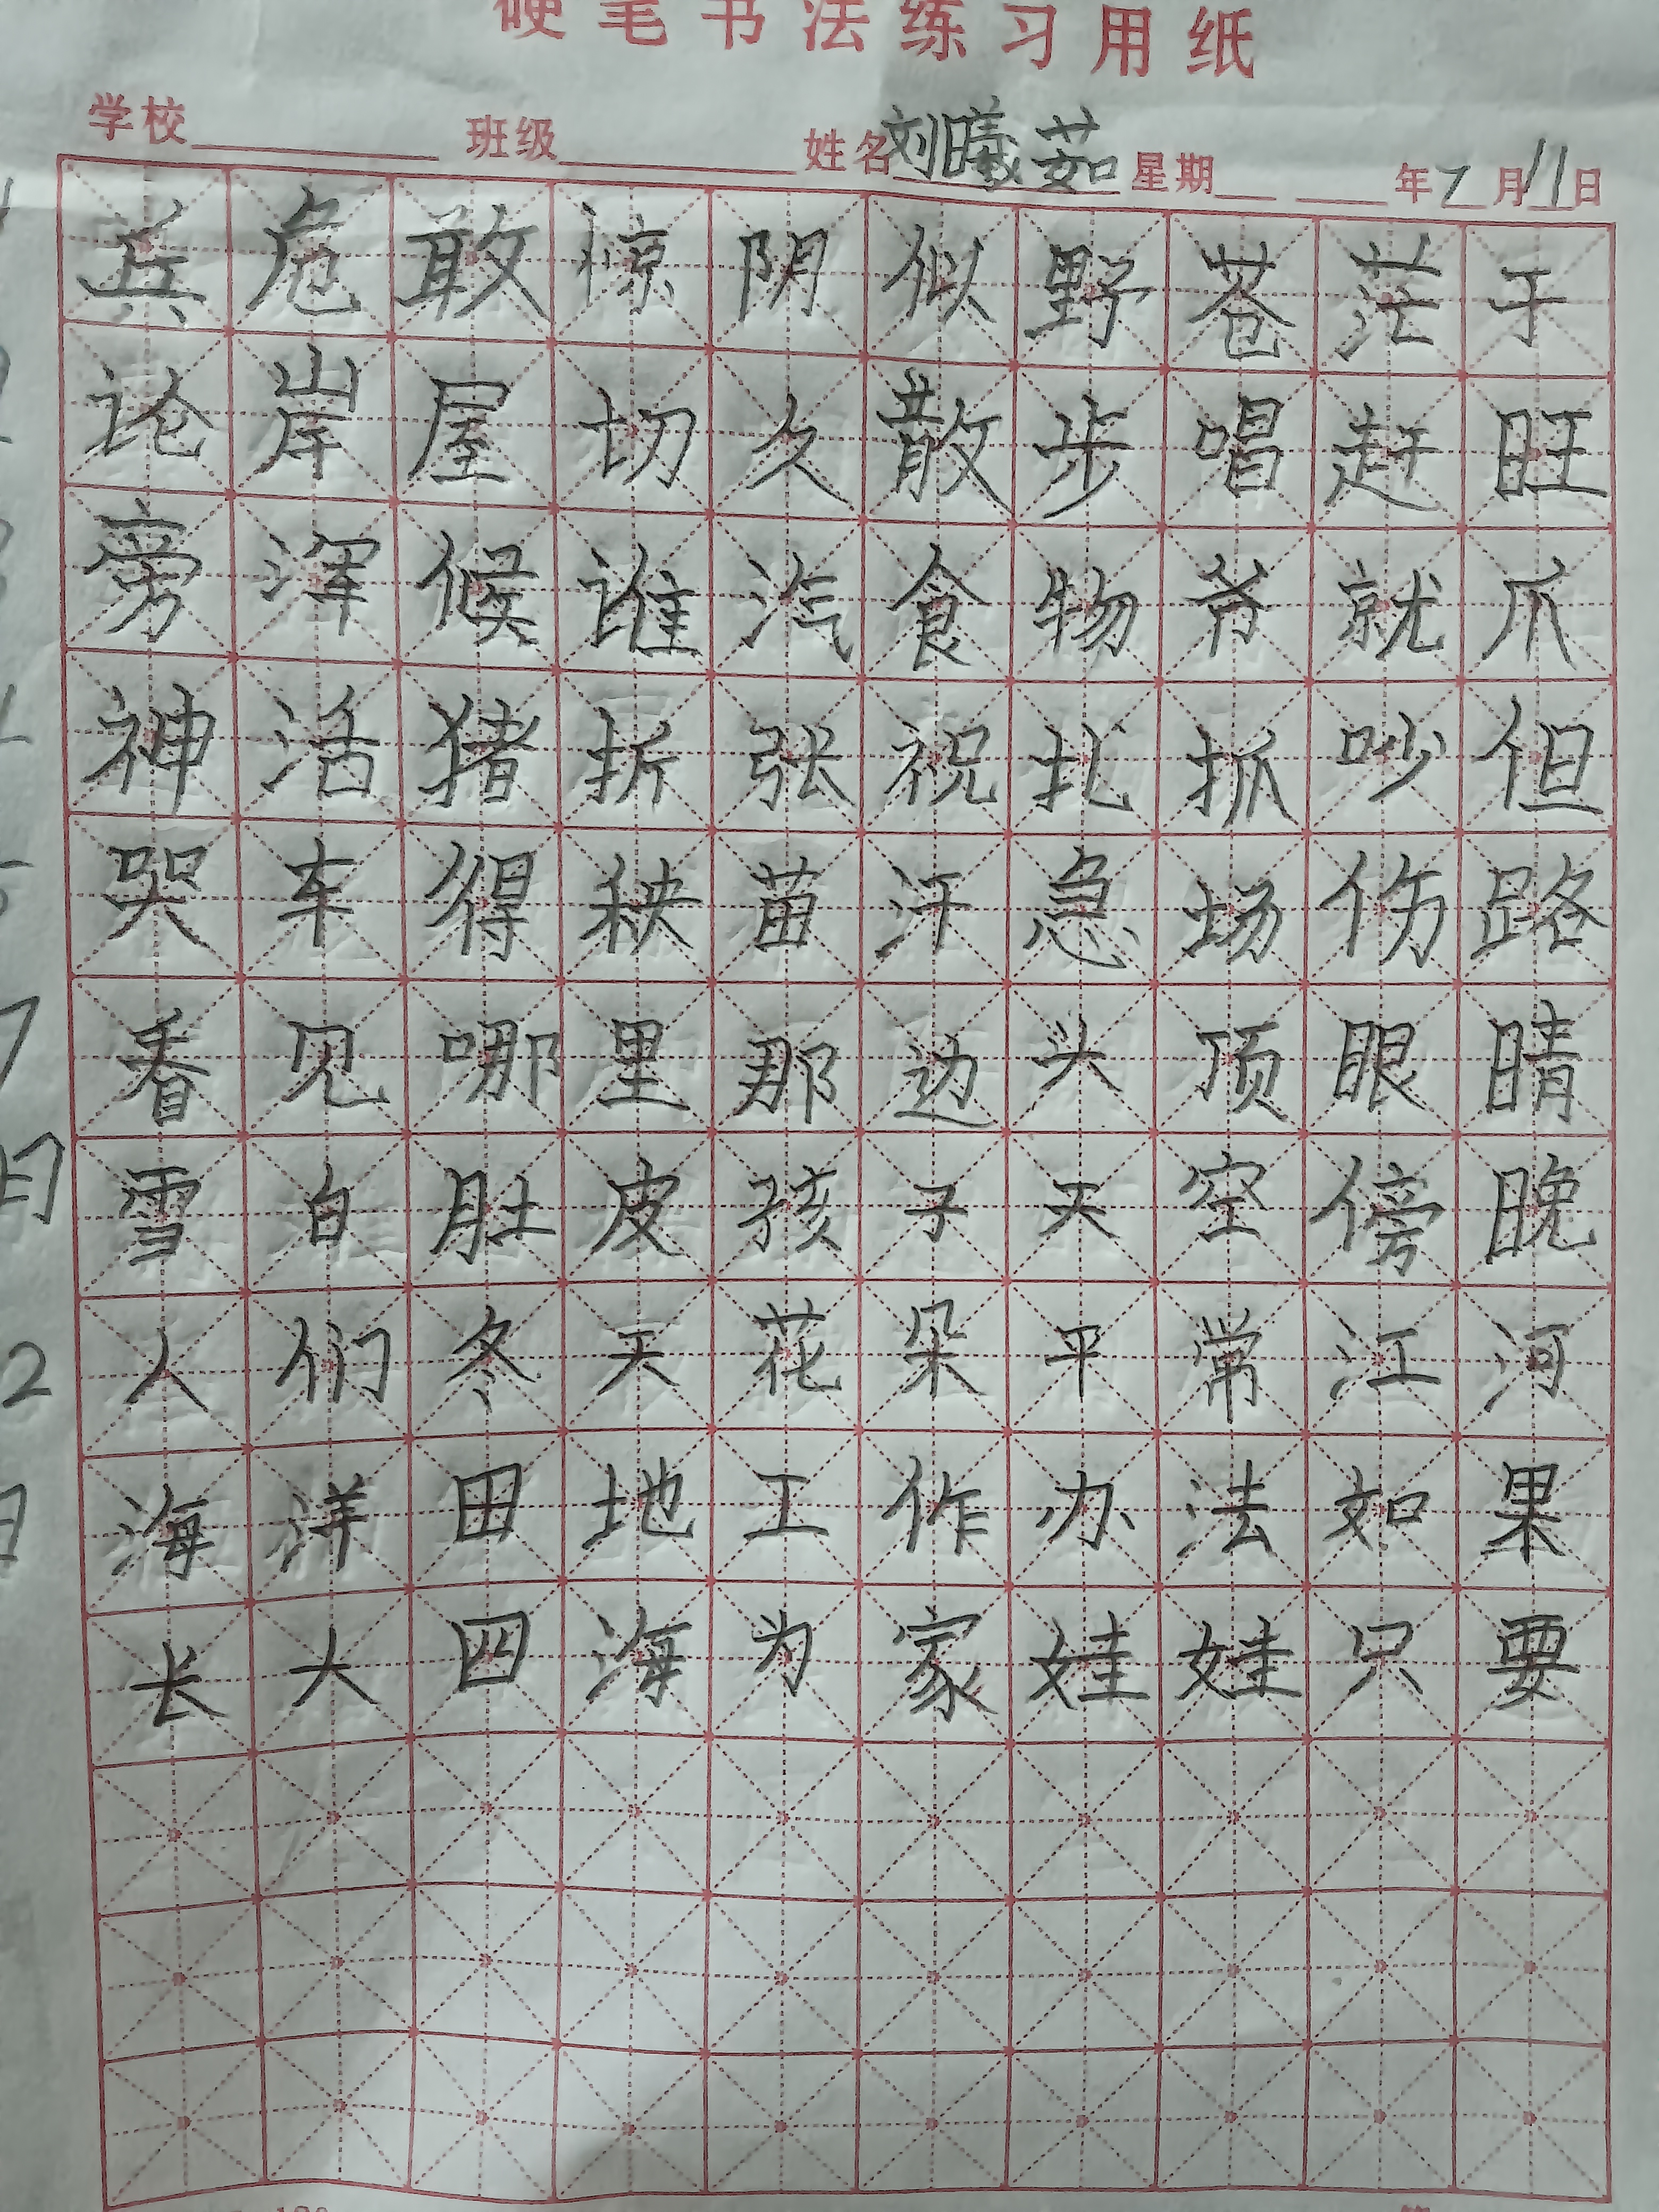 硬笔书法练习用纸
学校 班级 姓名 刘曦茹 星期 年7月11日
兵危敢惊阴似野苍茫于
论岸屋切久散步唱赶旺
旁浑候谁汽食物爷就爪
神活猪折张祝扎抓吵但
哭车得秧苗汗急场伤路
看见哪里那边头顶眼睛
雪白肚皮孩子天空傍晚
人们冬天花朵平常江河
海洋田地工作办法如果
长大四海为家娃娃只要